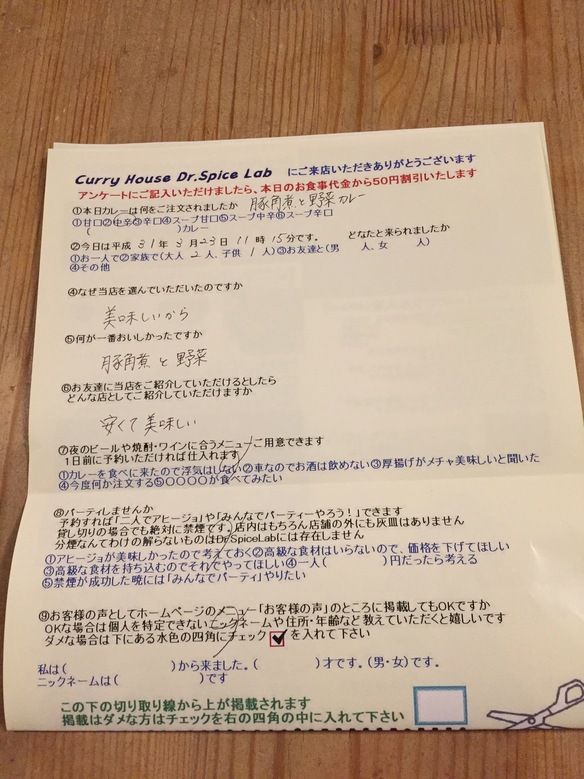 Curry House Dr.Spice Lab にご来店いただきありがとうございます
アンケートにご記入いただけましたら、本日のお食事代金から50円割引いたします
①本日カレーは何をご注文されましたか 豚角煮と野菜カレー
①甘口②中辛③辛口④スープ甘口⑤スープ中辛⑥スープ辛口
( )カレー
②今日は平成 31年 3月23日 11時 15分です。 どなたと来られましたか
①お一人で②家族で(大人 2人、子供 1人)③お友達と(男 人、女 人)
④その他
④なぜ当店を選んでいただいたのですか
美味しいから
⑤何が一番おいしかったですか
豚角煮と野菜
⑥お友達に当店をご紹介していただけるとしたら
どんな店としてご紹介していただけますか
安くて美味しい
⑦夜のビールや焼酎・ワインに合うメニューご用意できます
1日前に予約いただければ仕入れます
①カレーを食べに来たので浮気はしない②車なのでお酒は飲めない③厚揚げがメチャ美味しいと聞いた
④今度何か注文する⑤〇〇〇〇が食べてみたい
⑧パーティしませんか
予約すれば「二人でアヒージョ」や「みんなでパーティーやろう!」できます
貸し切りの場合でも絶対に禁煙です。店内はもちろん店舗の外にも灰皿はありません
分煙なんてわけの解らないものはDr.SpiceLabには存在しません
①アヒージョが美味しかったので考えておく②高級な食材はいらないので、価格を下げてほしい
③高級な食材を持ち込むのでそれでやってほしい④一人( )円だったら考える
⑤禁煙が成功した暁には「みんなでパーティ」やりたい
⑨お客様の声としてホームページのメニュー「お客様の声」のところに掲載してもOKですか
OKな場合は個人を特定できないニックネームや住所・年齢など教えていただくと嬉しいです
ダメな場合は下にある水色の四角にチェックを入れて下さい
私は( )から来ました。( )才です。(男・女)です。
ニックネームは( )です
この下の切り取り線から上が掲載されます
掲載はダメな方はチェックを右の四角の中に入れて下さい